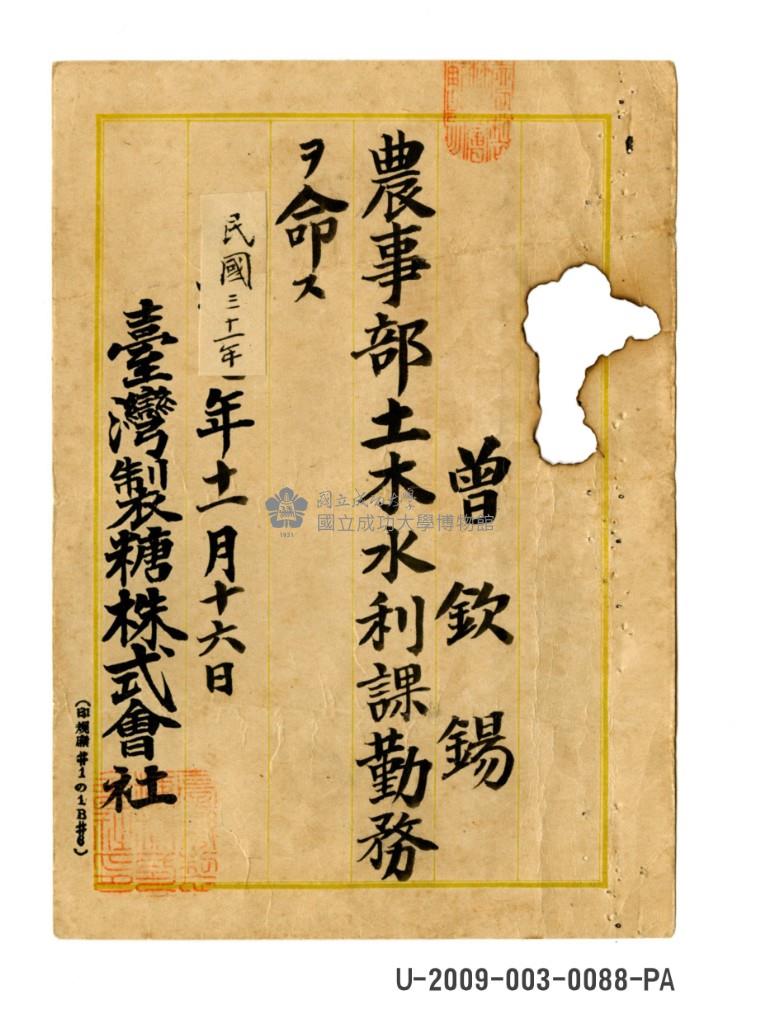 曾欽錫
農事部土木水利課勤務
ヲ命ス
民國三十一年
年十一月十六日
臺灣製糖株式會社
國立成功大學
國立成功大學博物館
1931
U-2009-003-0088-PA